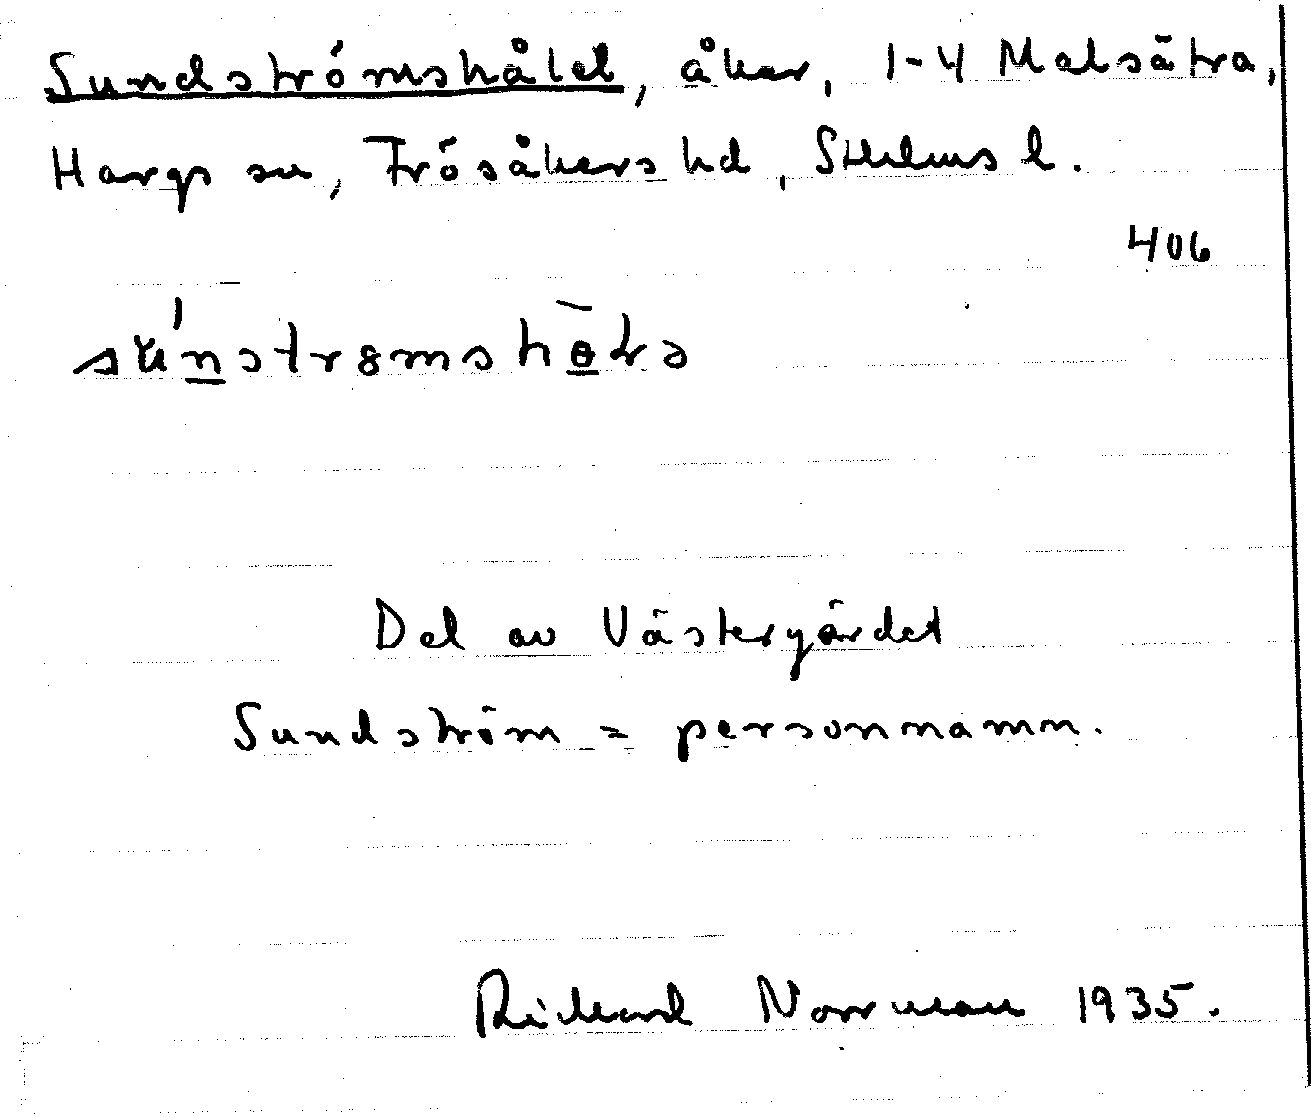 Sundströmshålet, åker, 1-4 Malsätra,
Hargs sn, Frösåkers hd, Sthlms l.
406
Del av Västergärdet
Sundström = personnamn.
Rickard Norrman 1935.